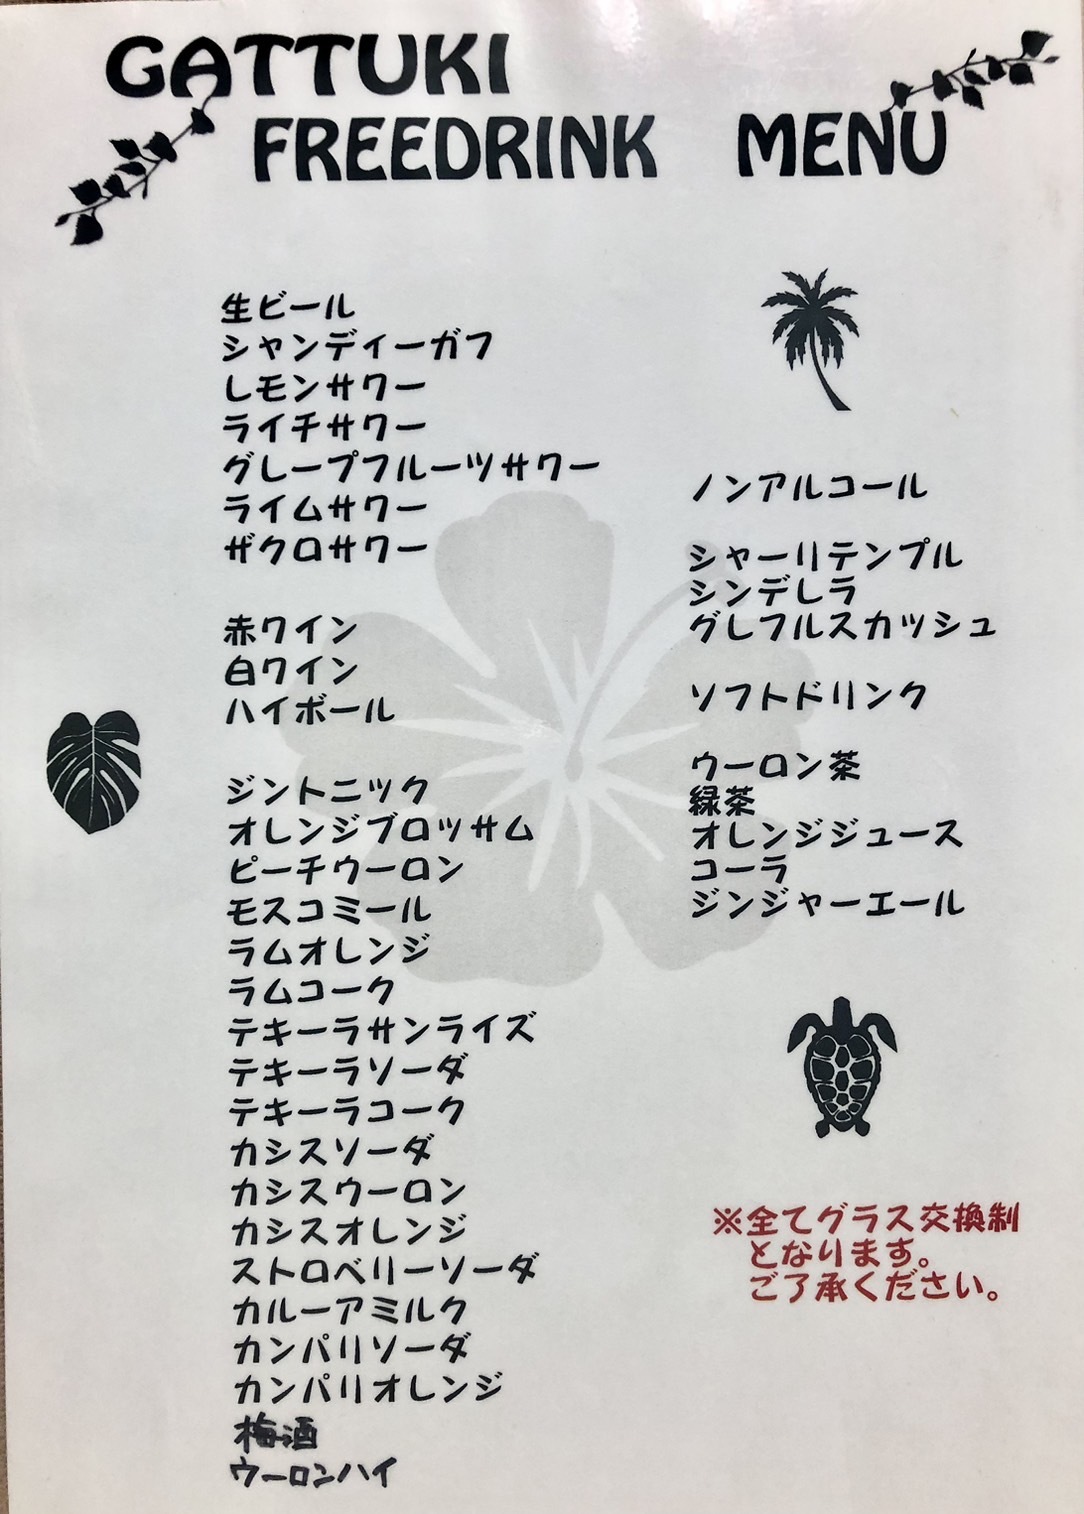 GATTUKI
FREEDRINK MENU
生ビール
シャンディーガフ
レモンサワー
ライチサワー
グレープフルーツサワー
ライムサワー
ザクロサワー
赤ワイン
白ワイン
ハイボール
ジントニック
オレンジブロッサム
ピーチウーロン
モスコミール
ラムオレンジ
ラムコーク
テキーラサンライズ
テキーラソーダ
テキーラコーク
カシスソーダ
カシスウーロン
カシスオレンジ
ストロベリーソーダ
カルーアミルク
カンパリソーダ
カンパリオレンジ
梅酒
ウーロンハイ
ノンアルコール
シャーリテンプル
シンデレラ
グレフルスカッシュ
ソフトドリンク
ウーロン茶
緑茶
オレンジジュース
コーラ
ジンジャーエール
※全てグラス交換制
となります。
ご了承ください。